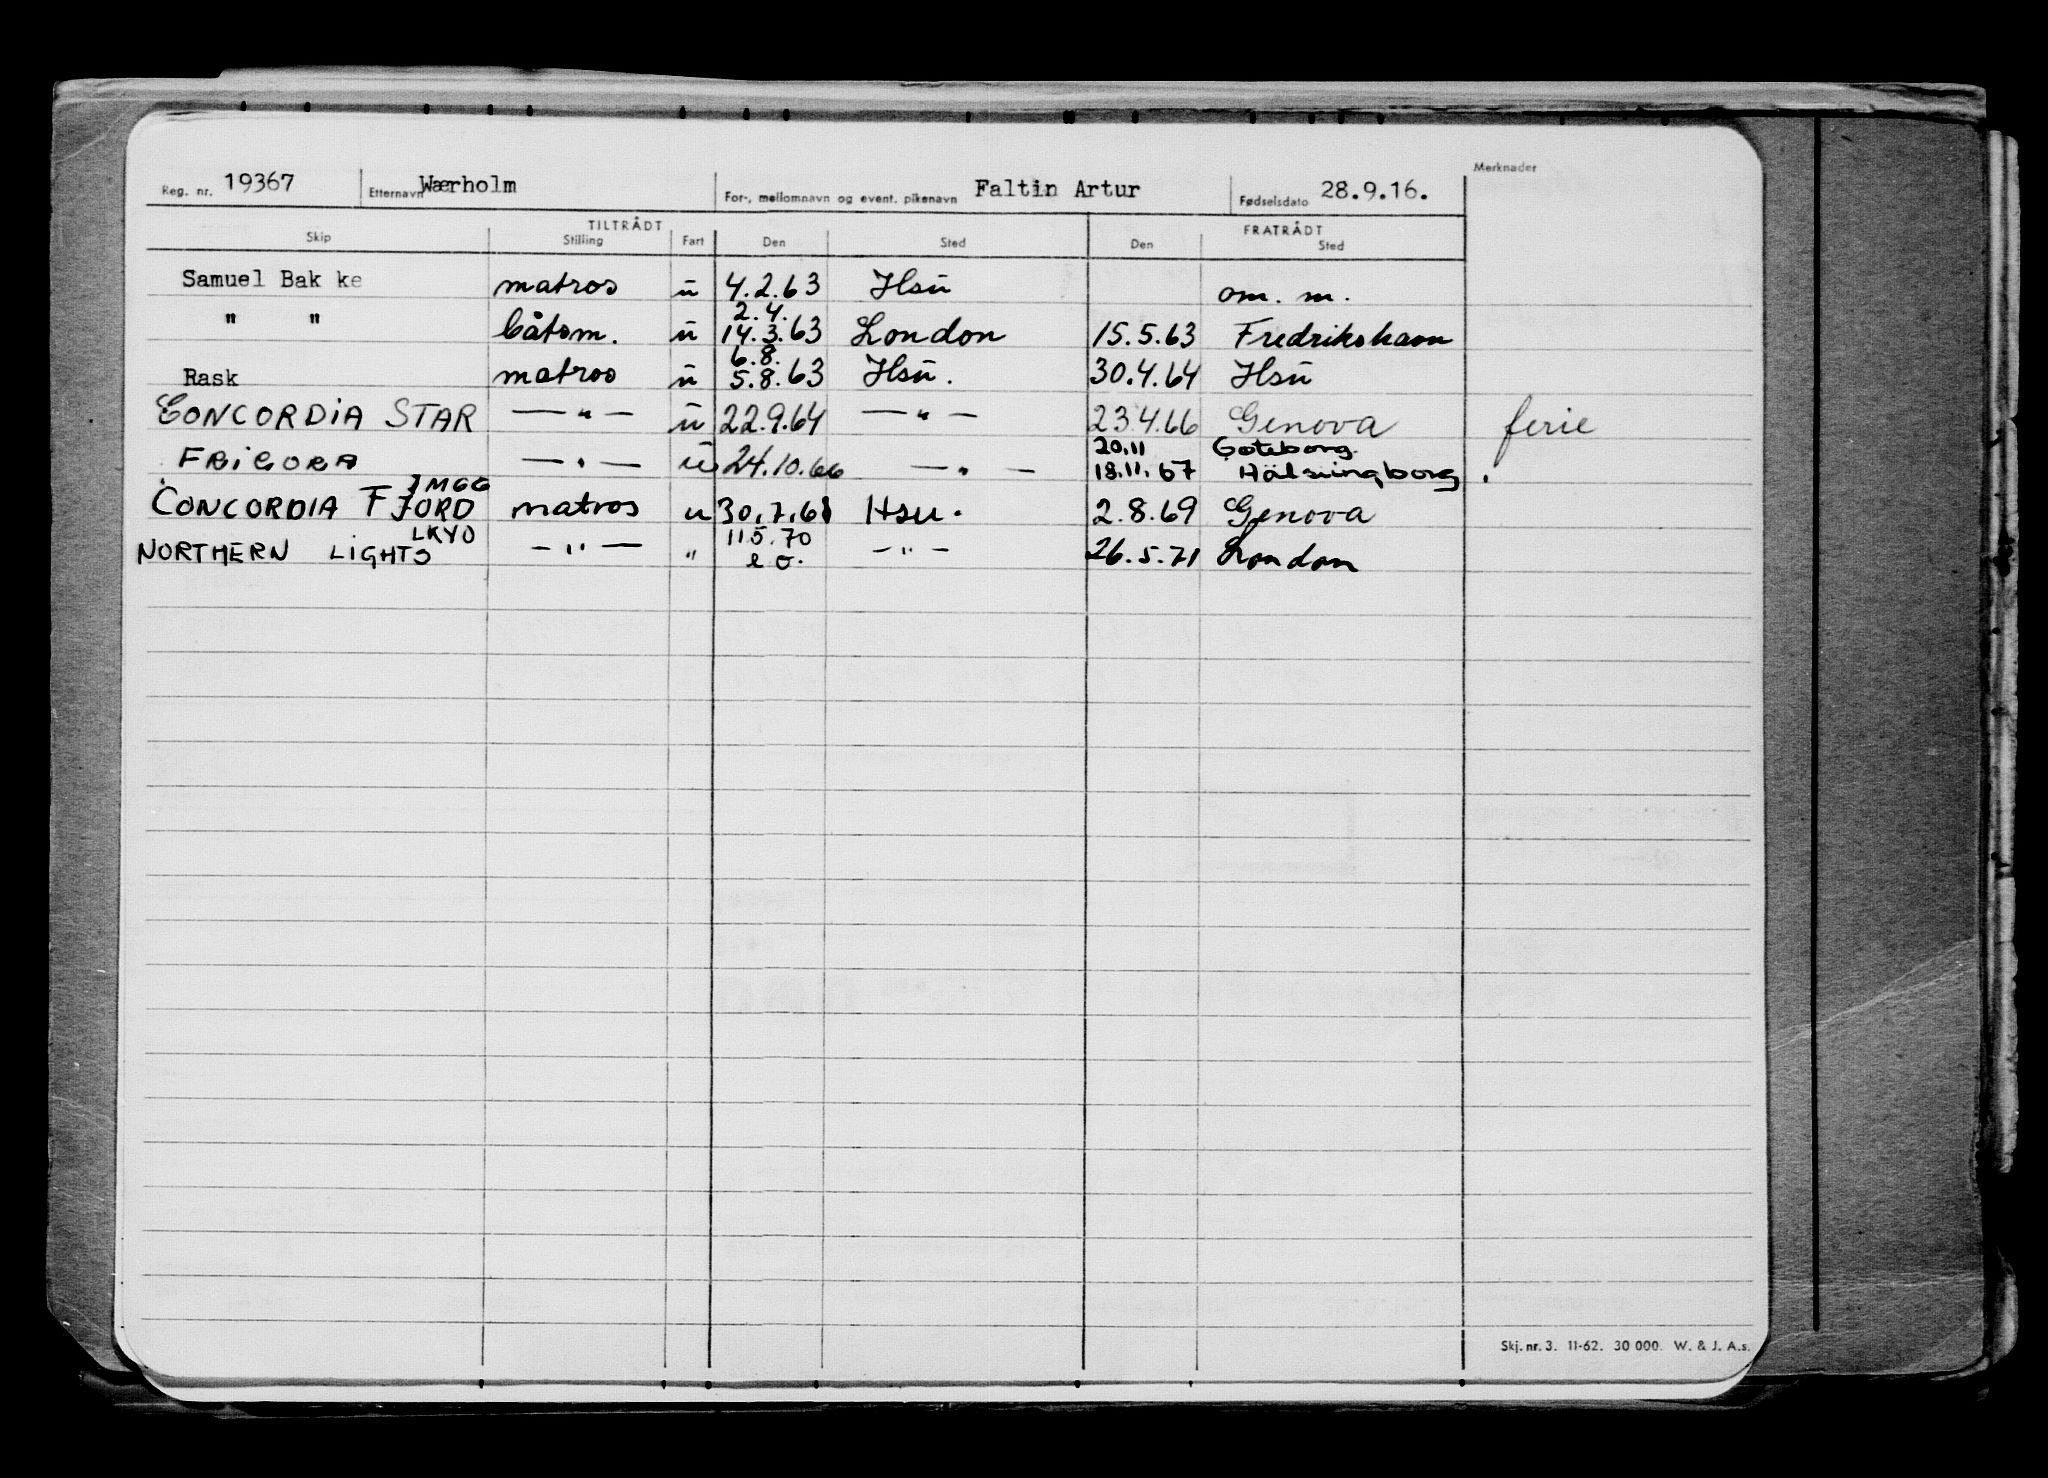 Reg. nr. 19367 Etternavn Wærholm For-, mellomnavn og event. pikenavn Faltin Artur Fødselsdato 28.9.16. Merknader
TILTRÅDT FRATRÅDT
Skip Stilling Fart Den Sted Den Sted
Samuel Bak ke matros u 4.2.63 Hsu om. m.
2.4.
" " båtsm. u 14.3.63 London 15.5.63 Fredrikshavn
6.8.
Rask matros u 5.8.63 Hsu. 30.4.64 Hsu
CONCORDIA STAR — " — u 22.9.64 — " — 23.4.66 Genova ferie
20.11 Goteborg.
FRIGORA — " — u 24.10.66 — " — 18.11.67 Hälsingborg.
JMGG
CONCORDIA FJORD matros u 30.7.68 Hsu. 2.8.69 Genova
LKYO 11.5.70
NORTHERN LIGHTS — " — " e o. — " — 26.5.71 London
Skj. nr. 3. 11-62. 30 000. W. & J. A.s.